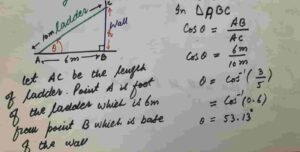 10m ladder
C
wall
θ
A
6m
B
let AC be the length
of ladder. Point A is foot
of the ladder which is 6m
from point B which is base
of the wall
In ΔABC
Cosθ = AB
AC
Cosθ = 6m
10m
θ = Cos⁻¹(3/5)
= Cos⁻¹(0.6)
θ = 53.13°